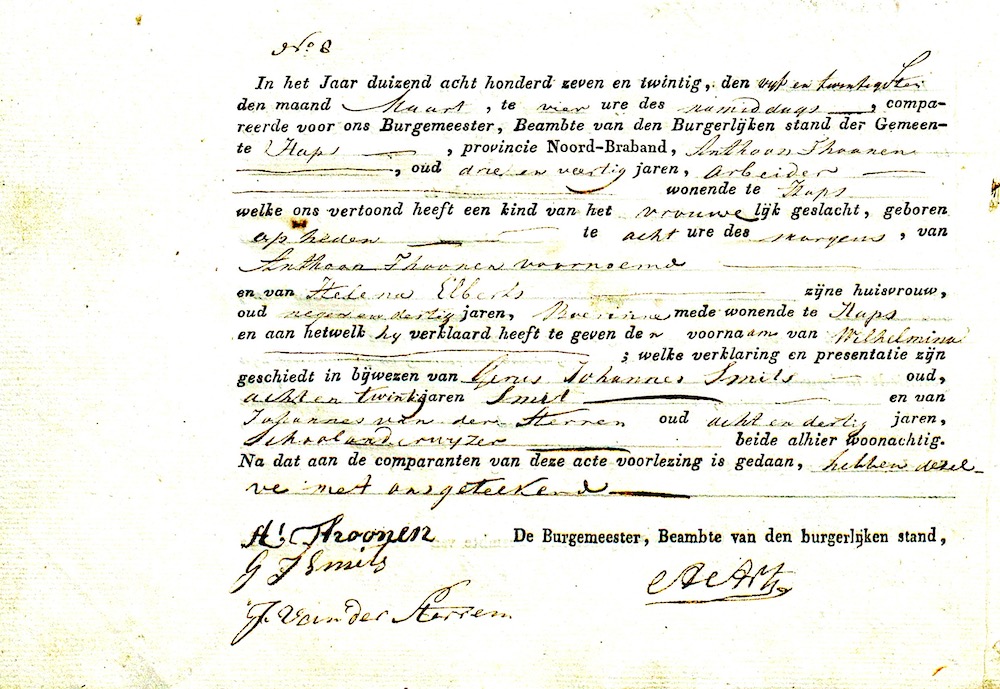 No. 8
In het Jaar duizend acht honderd zeven en twintig, den vyf en twintigsten
den maand Maart, te vier ure des namiddags, compa-
reerde voor ons Burgemeester, Beambte van den Burgerlijken stand der Gemeen-
te Haps, provincie Noord-Braband, Anthoon Thoonen
, oud drie en veertig jaren, arbeider
wonende te Haps
welke ons vertoond heeft een kind van het vrouwelijk geslacht, geboren
op heden te acht ure des morgens, van
Anthoon Thoonen voornoemd
en van Helena Elberts zijne huisvrouw,
oud negen en dertig jaren, Boerinne mede wonende te Haps
en aan hetwelk hy verklaard heeft te geven den voornaam van Wilhelmina
; welke verklaring en presentatie zijn
geschiedt in bijwezen van Gerus Johannes Smits oud,
acht en twintig jaren Smit en van
Johannes van der Sterren oud acht en dertig jaren,
Schoolonderwyzer beide alhier woonachtig.
Na dat aan de comparanten van deze acte voorlezing is gedaan, hebben dezel-
ve met ons geteekend
At Thoonen
De Burgemeester, Beambte van den burgerlijken stand,
G J Smits
J. van der Sterren